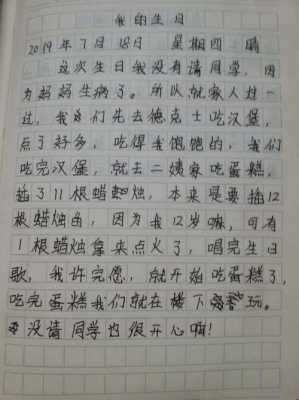 我的生日
2019年7月18日 星期四 晴
这次生日我没有请同学，因
为妈妈生病了。所以就家人过一
过，我们先去德克士吃汉堡，
点了好多，吃得我饱饱的，我们
吃完汉堡，就去二姨家吃蛋糕，
插了11根蜡烛，本来是要插12
根蜡烛的，因为我12岁嘛，可有
1根蜡烛拿来点火了，唱完生日
歌，我许完愿，就开始吃蛋糕了，
吃完蛋糕我们就在楼下玩。
没请同学也很开心嘛！